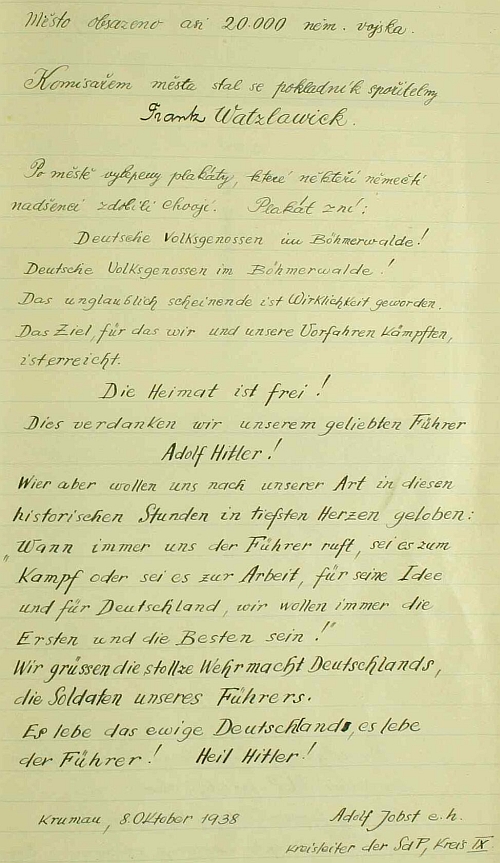 Město obsazeno asi 20.000 něm. vojska.
Komisařem města stal se pokladník spořitelny
Frank Watzlawick.
Po městě vylepeny plakáty, které někteří němečtí
nadšenci zdobili chvojí. Plakát zní:
Deutsche Volksgenossen im Böhmerwalde!
Deutsche Volksgenossen im Böhmerwalde!
Das unglaublich scheinende ist Wirklichkeit geworden.
Das Ziel, für das wir und unsere Vorfahren kämpften,
ist erreicht.
Die Heimat ist frei!
Dies verdanken wir unserem geliebten Führer
Adolf Hitler!
Wier aber wollen uns nach unserer Art in diesen
historischen Stunden in tiefsten Herzen geloben:
"Wann immer uns der Führer ruft, sei es zum
Kampf oder sei es zur Arbeit, für seine Idee
und für Deutschland, wir wollen immer die
Ersten und die Besten sein!"
Wir grüssen die stollze Wehrmacht Deutschlands,
die Soldaten unseres Führers.
Es lebe das ewige Deutschland, es lebe
der Führer! Heil Hitler!
Krumau, 8. Oktober 1938 Adolf Jobst e.h.
Kreisleiter der SdP, Kreis IX.